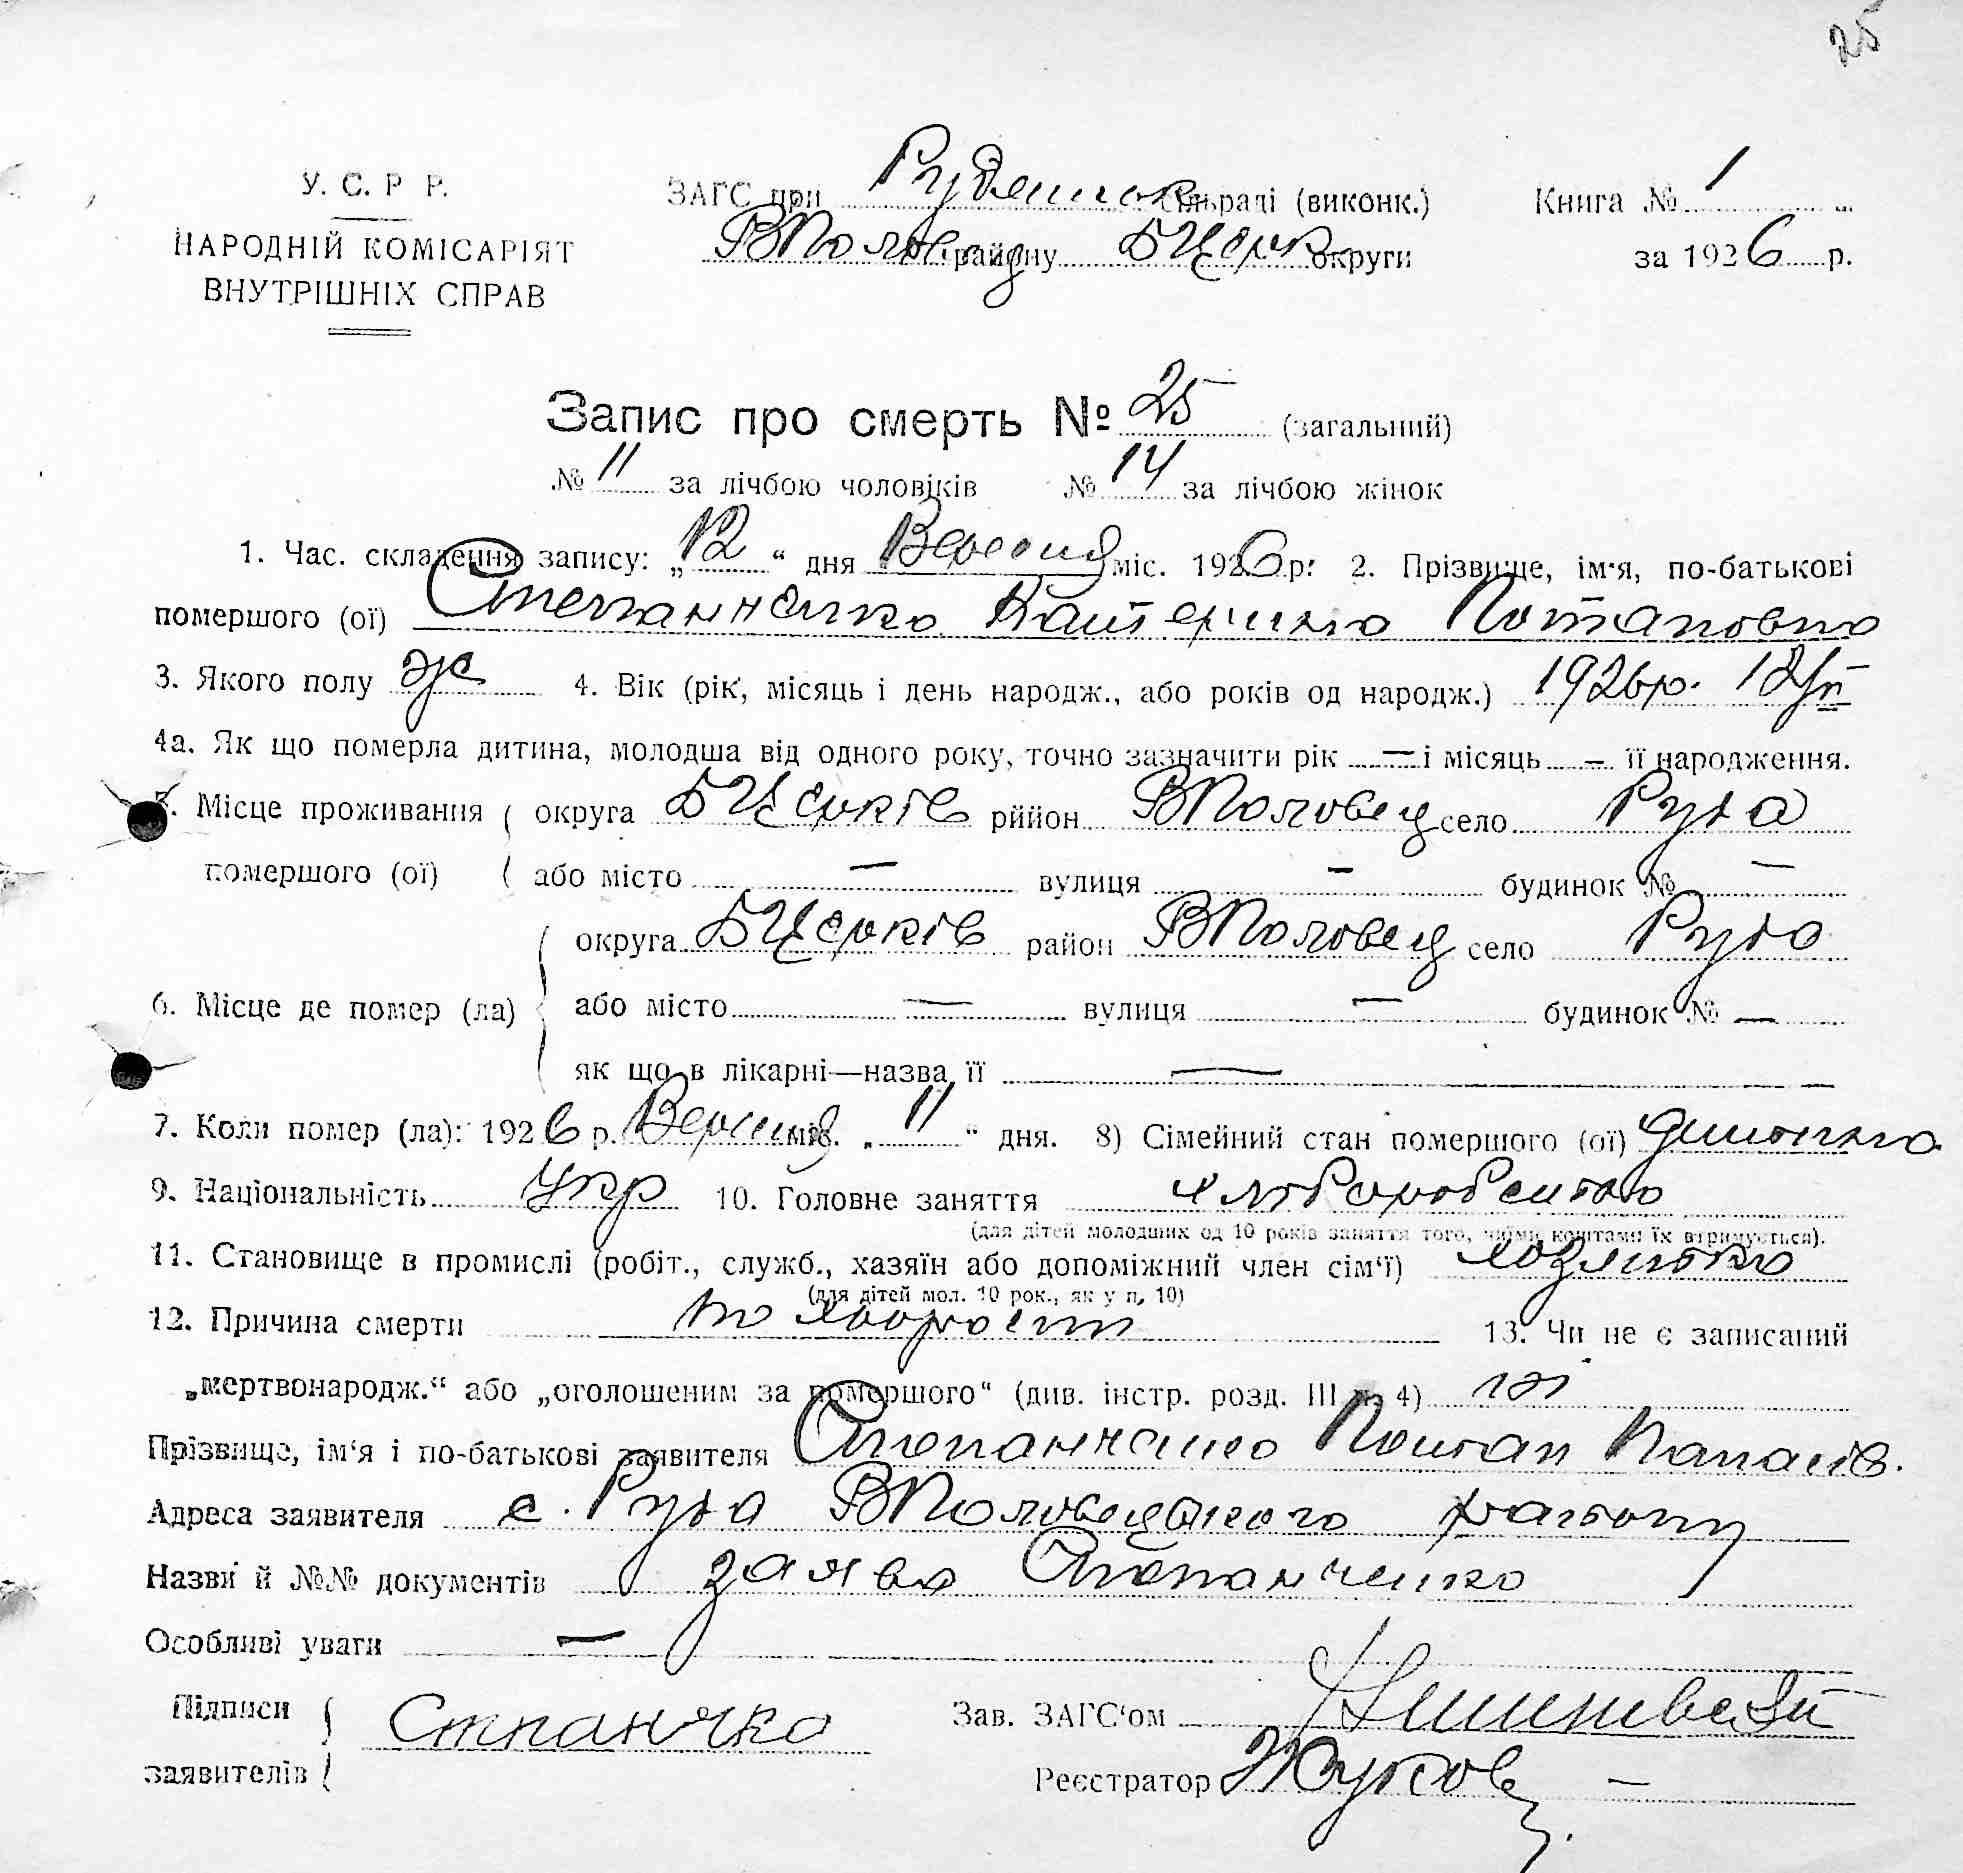 25
У. С. Р Р.
НАРОДНІЙ КОМІСАРІЯТ
ВНУТРІШНІХ СПРАВ
ЗАГС при Рудянськ сільраді (виконк.)
ВПоловец району БЦерк округи
Книга № 1
за 1926 р.
Запис про смерть № 25 (загальний)
№ 11 за лічбою чоловіків № 14 за лічбою жінок
1. Час. складення запису: „12“ дня Вересня міс. 1926 р. 2. Прізвище, ім'я, по-батькові
помершого (ої) Степанченко Катерина Потаповна
3. Якого полу ж 4. Вік (рік, місяць і день народж., або років од народж.) 1926р. 12/
4а. Як що померла дитина, молодша від одного року, точно зазначити рік — і місяць — її народження.
5. Місце проживання округа БЦерків рййон ВПоловец село Руда
помершого (ої) або місто — вулиця — будинок № —
округа БЦерків район ВПоловец село Руда
6. Місце де помер (ла) або місто — вулиця — будинок № —
як що в лікарні—назва її —
7. Коли помер (ла): 1926 р. Вересня міс. „11“ дня. 8) Сімейний стан помершого (ої) дитина
9. Національність Укр 10. Головне заняття хліборобство
(для дітей молодших од 10 років заняття того, чиїми коштами їх втримується).
11. Становище в промислі (робіт., служб., хазяїн або допоміжний член сім'ї)
(для дітей мол. 10 рок., як у п. 10)
12. Причина смерти 13. Чи не є записаний
„мертвонародж.“ або „оголошеним за помершого“ (див. інстр. розд. III п. 4) ні
Прізвище, ім'я і по-батькові заявителя Степанченко Потап Панасів.
Адреса заявителя с. Руда ВПоловецького району
Назви й №№ документів заява Степанченко
Особливі уваги —
Підписи
заявителів Стпанчко
Зав. ЗАГС'ом
Реєстратор —